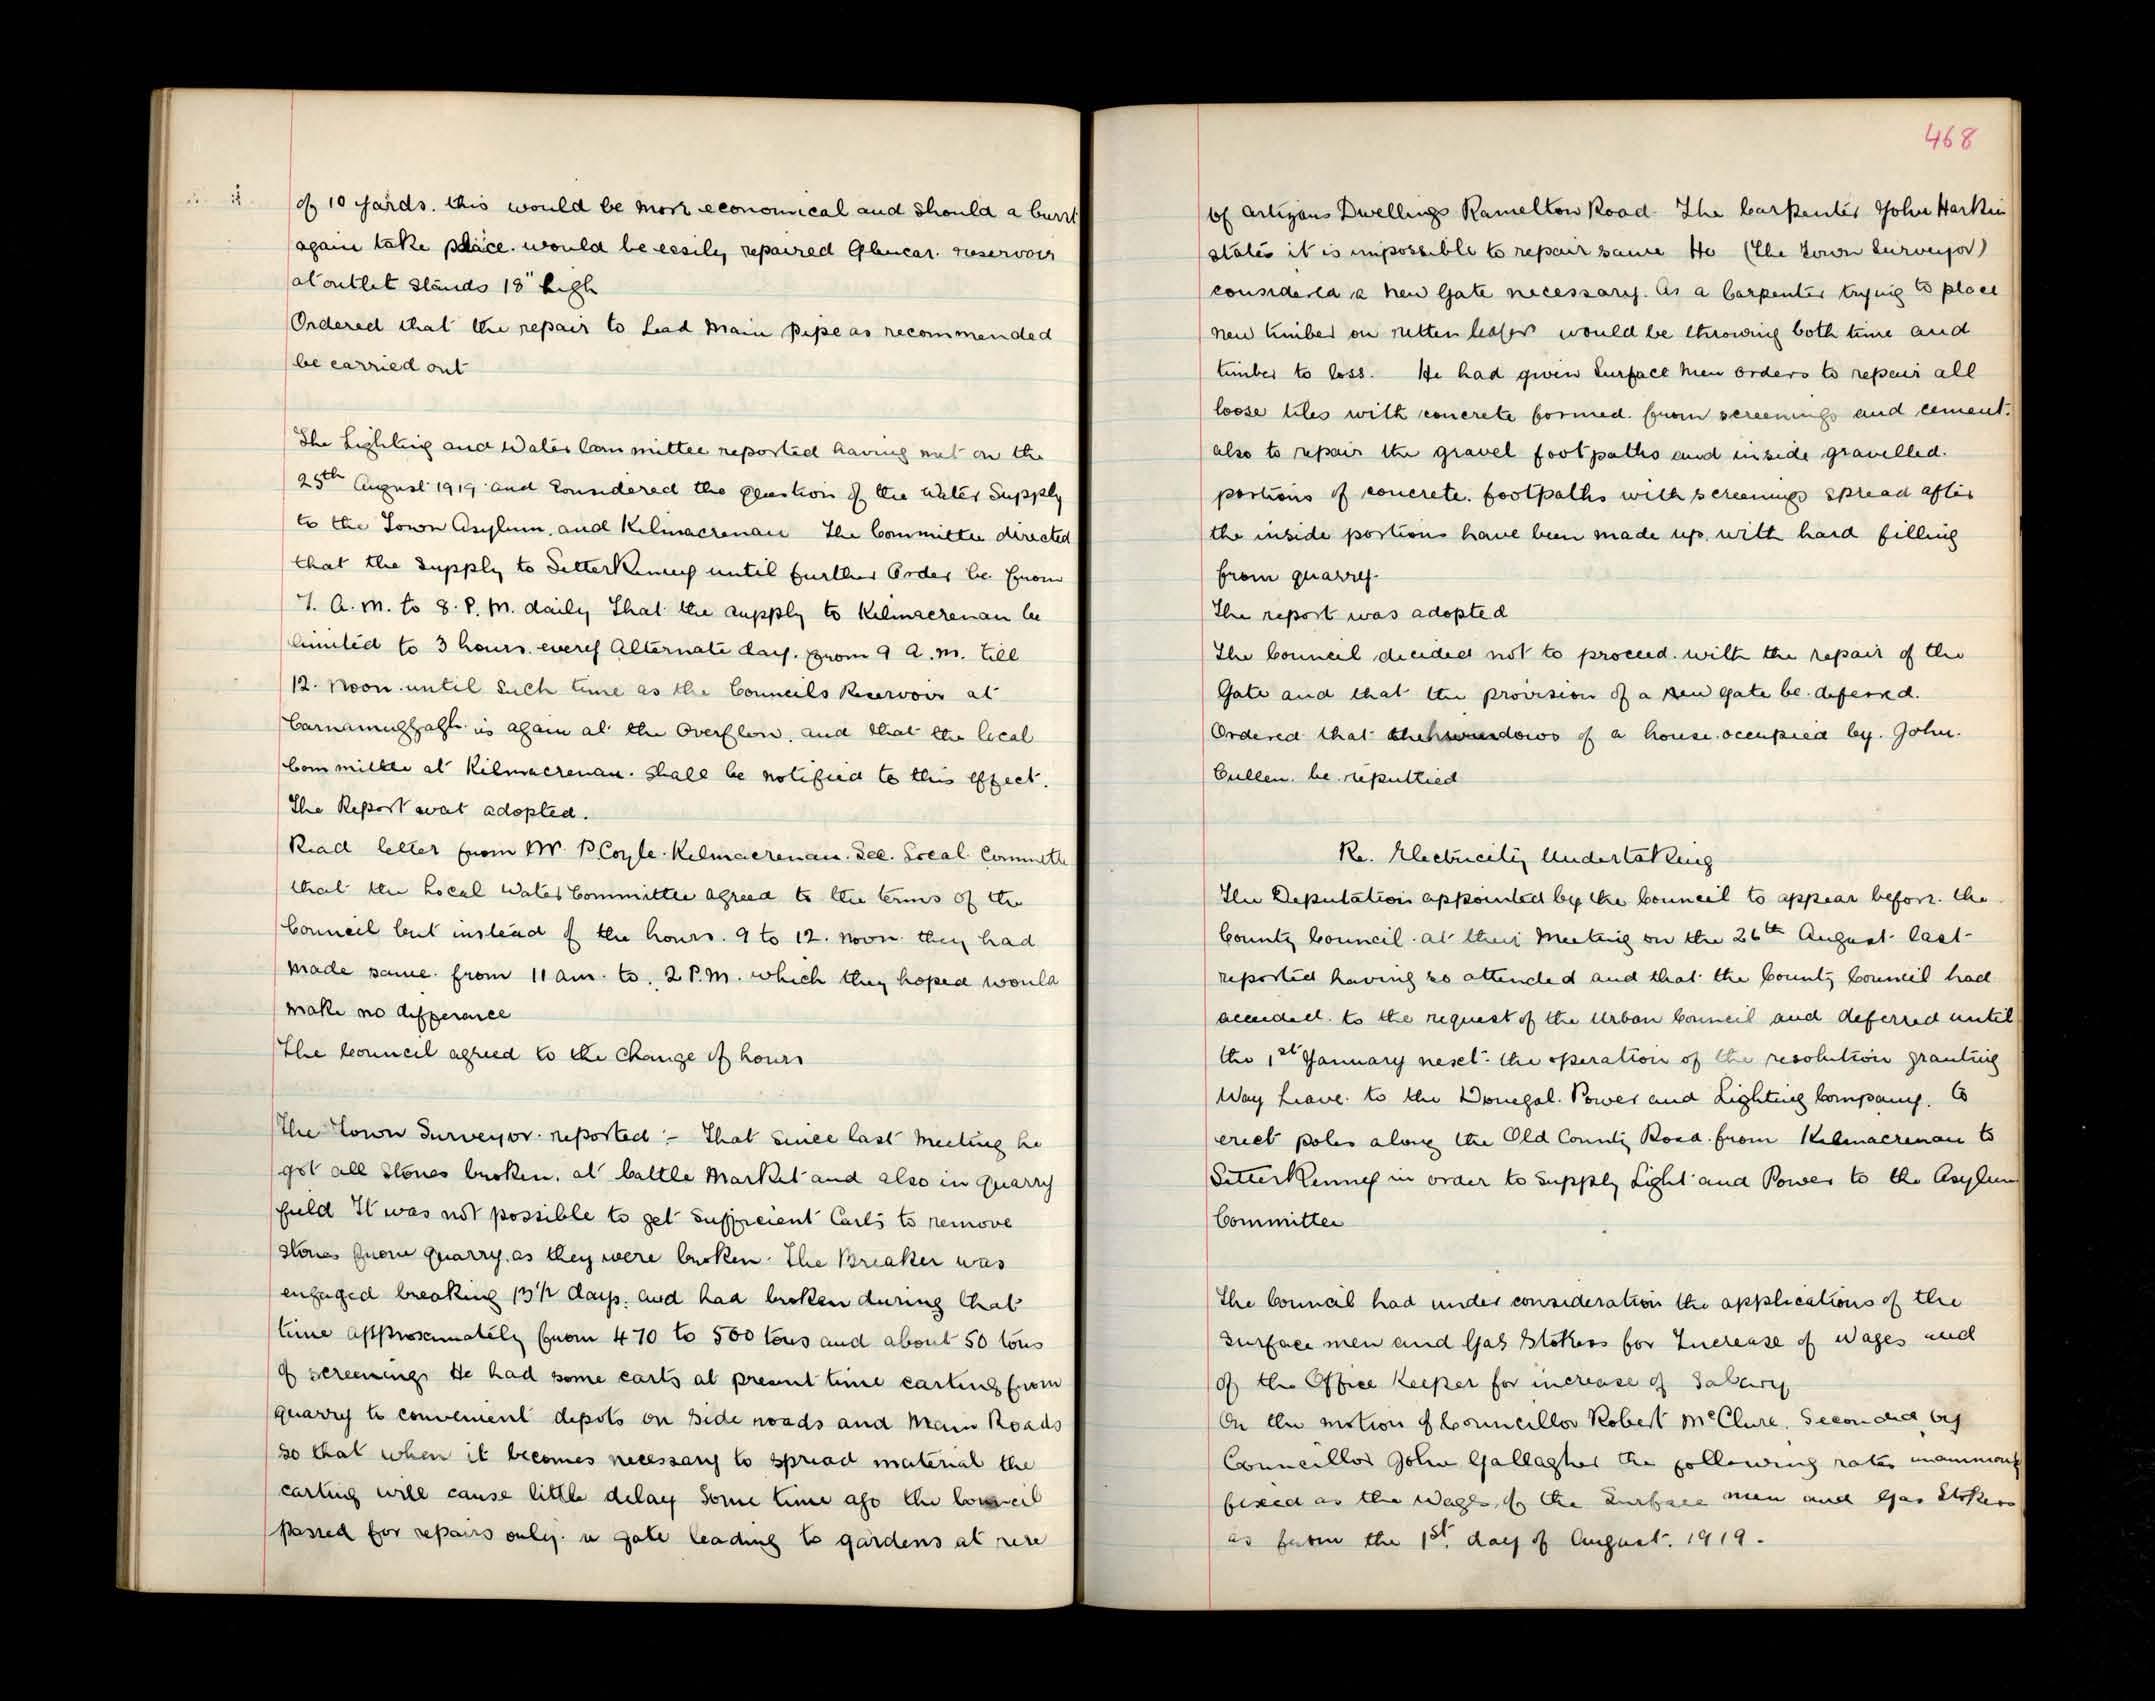 of 10 yards. this would be more economical and should a burst
again take place. would be easily repaired Glencar. reservoir
at outlet stands 18" high
Ordered that the repair to Lead Main pipe as recommended
be carried out
The Lighting and Water Committee reported having met on the
25th August 1919 and Considered the question of the Water Supply
to the Town Asylum, and Kilmacrenan The Committee directed
that the Supply to Letterkenny until further Order be from
7. A.M. to 8. P.M. daily That the supply to Kilmacrenan be
limited to 3 hours every Alternate day. from 9 A.M. till
12. Noon until Such time as the Councils Reservoir at
Carnamuggagh is again at the Overflow, and that the local
Committee at Kilmacrenan. shall be notified to this effect.
The Report was adopted.
Read letter from Mr P. Coyle. Kilmacrenan. Sec. Local Committee
that the Local Water Committee agreed to the terms of the
Council but instead of the hours. 9 to 12. noon they had
made same from 11 am. to. 2 P.M. which they hoped would
make no difference
The Council agreed to the Change of hours
The Town Surveyor. reported :- That since last Meeting he
got all Stones broken. at Cattle Market and also in quarry
field It was not possible to get Sufficient Carts to remove
stones from quarry. as they were broken. The Breaker was
engaged breaking 13½ days. and had broken during that
time approximately from 470 to 500 tons and about 50 tons
of screenings He had some carts at present time carting from
quarry to convenient depots on Side roads and Main Roads
so that when it becomes necessary to spread material the
carting will cause little delay Some time ago the Council
passed for repairs only. a gate leading to gardens at rere
468
of Artizans Dwellings Ramelton Road. The Carpenter John Harkin
states it is impossible to repair same He (the Town Surveyor)
considered a new Gate necessary. As a Carpenter trying to place
new timber on rotten would be throwing both time and
timber to loss. He had given Surface Men orders to repair all
loose tiles with concrete formed. from screenings and cement.
also to repair the gravel footpaths and inside gravelled.
portions of concrete. footpaths with screenings spread after
the inside portions have been made up. with hard filling
from quarry.
The report was adopted
The Council decided not to proceed. with the repair of the
Gate and that the provision of a new gate be deferred.
Ordered that the windows of a house occupied by. John.
Cullen. be reputtied
Re. Electricity Undertaking
The Deputation appointed by the Council to appear before. the
County Council. at their Meeting on the 26th August last
reported having so attended and that the County Council had
acceeded. to the request of the Urban Council and deferred until
the 1st January next. the operation of the resolution granting
Way leave to the Donegal. Power and Lighting Company. to
erect poles along the Old County Road from Kilmacrenan to
Letterkenny in order to Supply Light and Power to the Asylum
Committee
The Council had under consideration the applications of the
Surface men and Gas Stokers for Increase of Wages and
of the Office Keeper for increase of Salary
On the motion of Councillor Robert McClure. Seconded by
Councillor John Gallagher the following rates unanimously
fixed as the wages of the Surface men and Gas Stokers
as from the 1st. day of August. 1919.